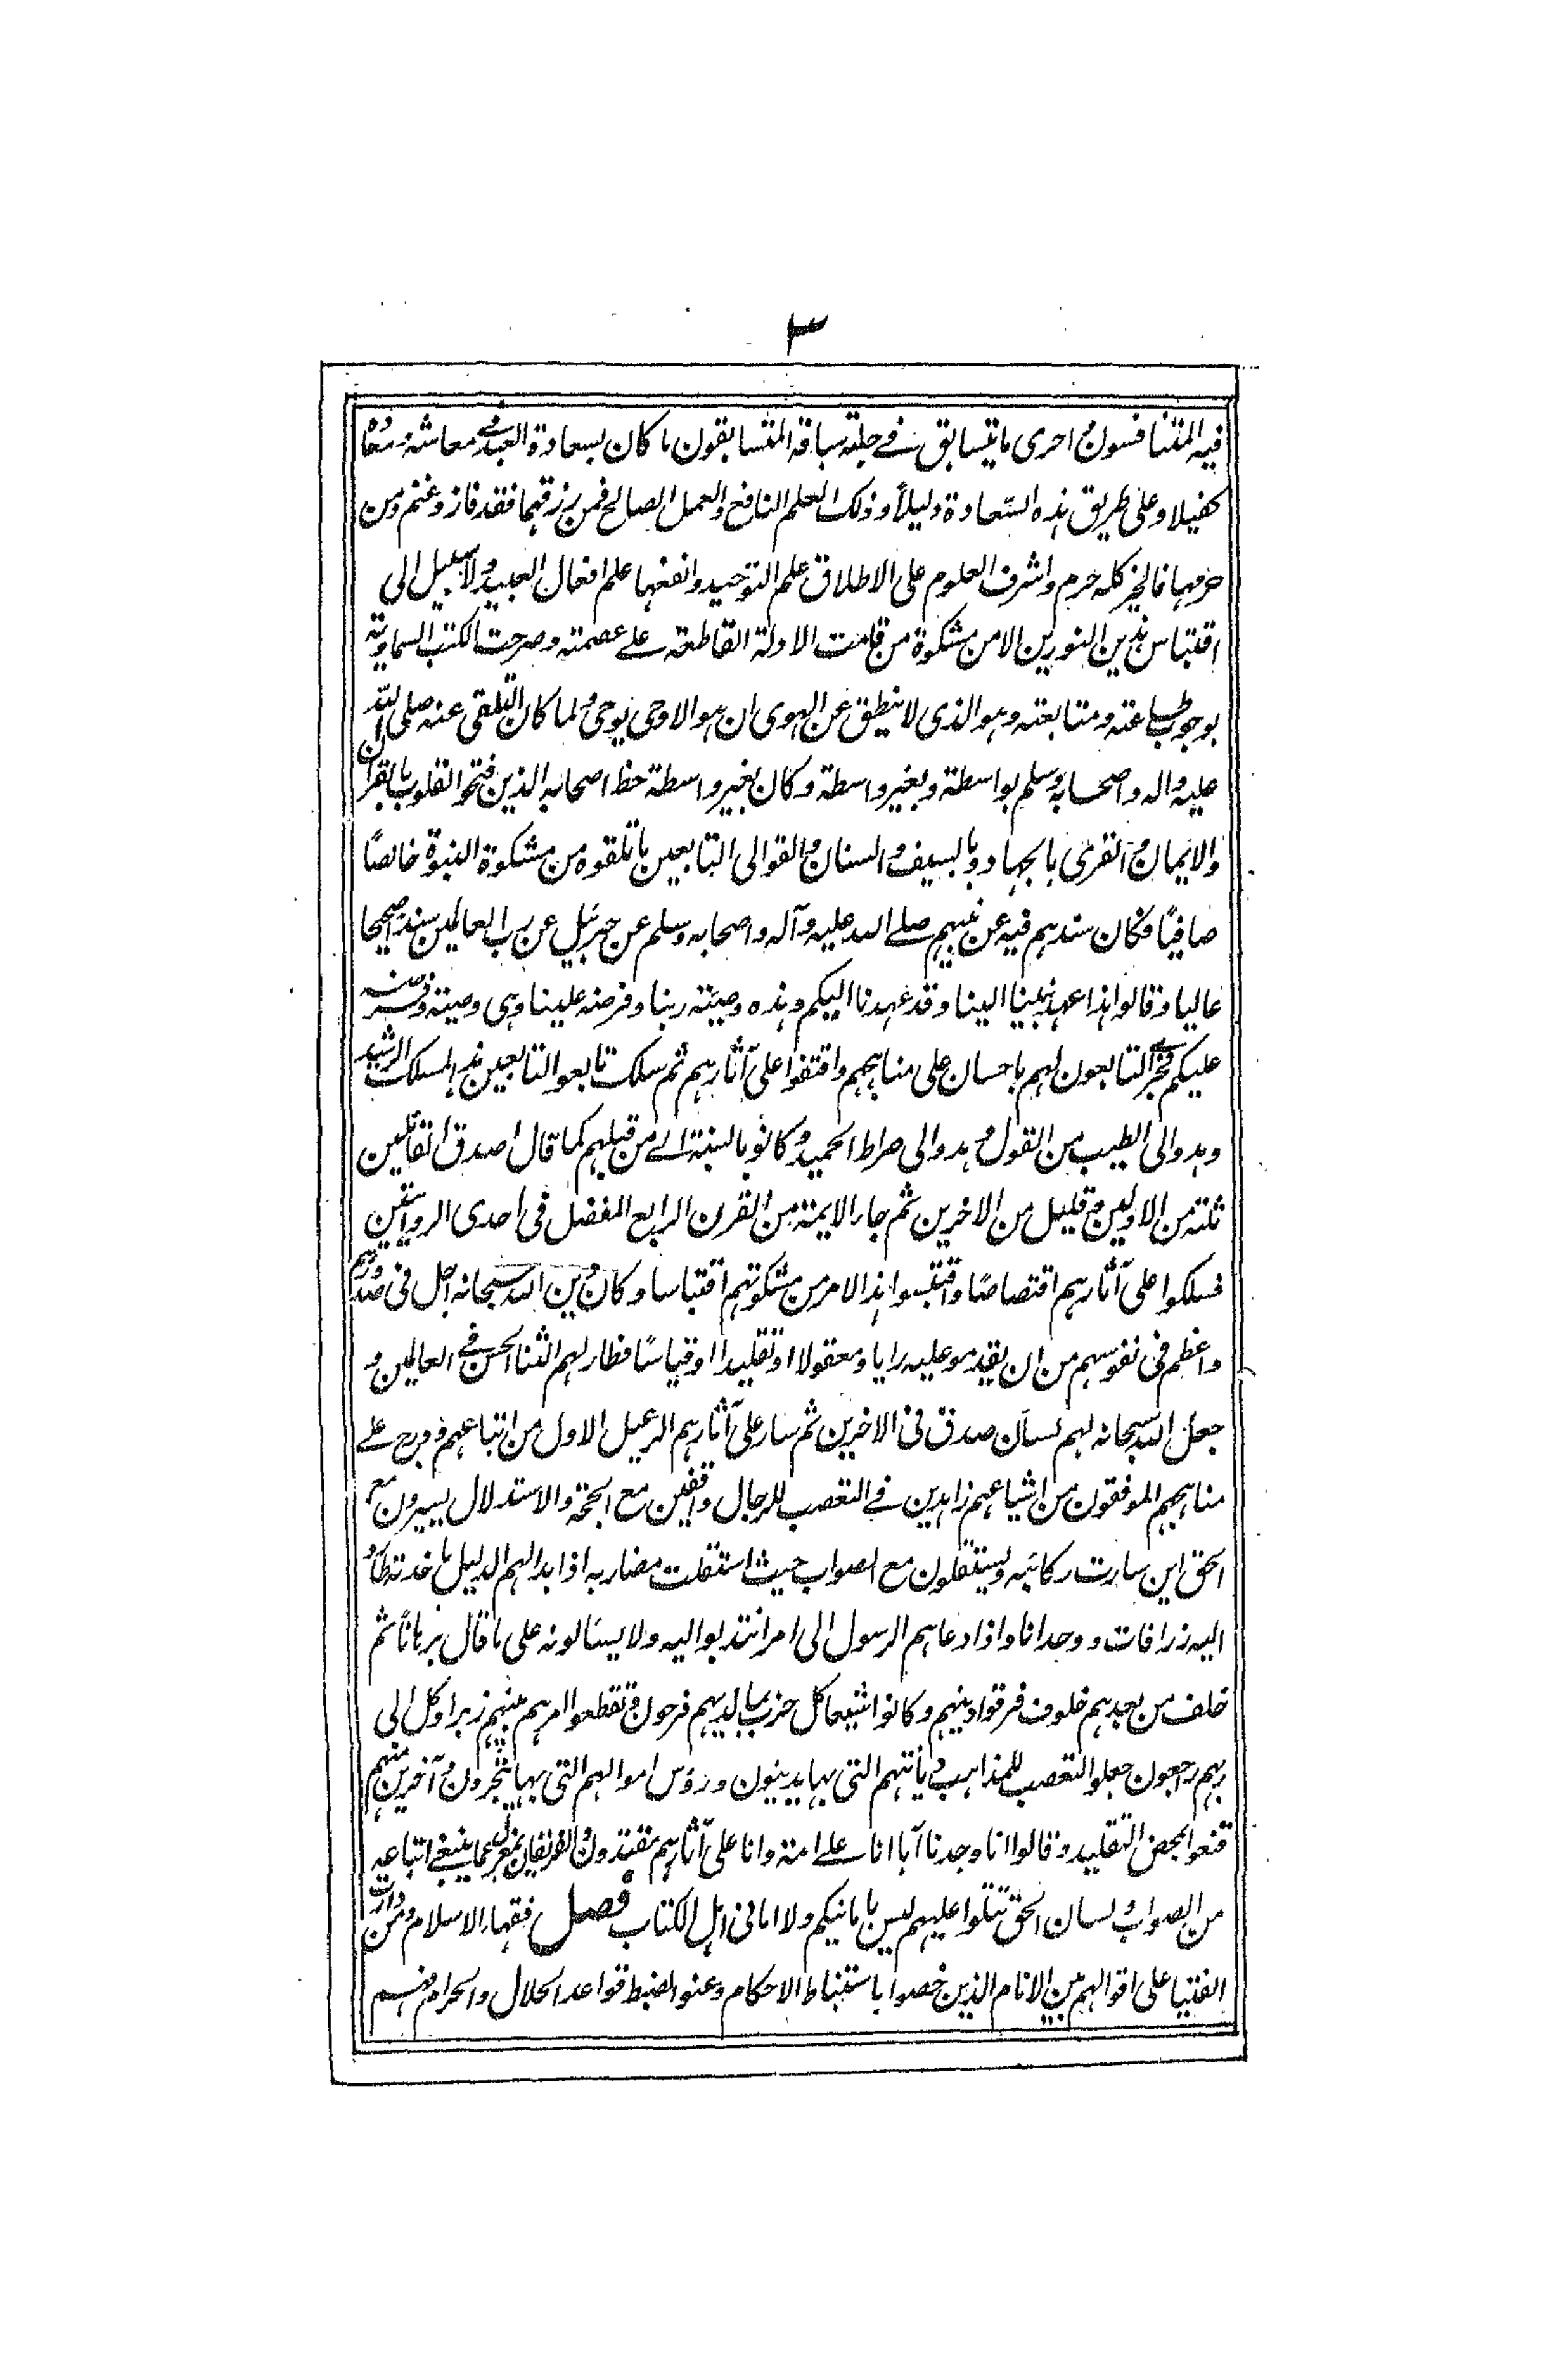 ٣
فيه المتنافسون و احرى ما يتسابق في حلبة سباقه المتسابقون ما كان بسعادة العبد في معاشه و معاده
كفيلا وعلى طريق هذه السّعادة دليلاً وذلك العلم النافع والعمل الصالح فمن رزقهما فقد فاز وغنم ومن
حرمهما فالخير كله حرم واشرف العلوم على الاطلاق علم التوحيد وانفعها علم افعال العبيد ولا سبيل الى
اقتباس هذين النورين الا من مشكوة من قامت الادلة القاطعة على عصمته وصرحت الكتب السماوية
بوجوب طاعته ومتابعته وهو الذى لا ينطق عن الهوى ان هو الا وحى يوحى و لما كان التلقى عنه صلى الله
عليه واله واصحابه وسلم بواسطة وبغير واسطة وكان بغير واسطة حظ اصحابه الذين فتحوا القلوب بالقران
والايمان و القرى بالجهاد و بالسيف و السنان و القوا الى التابعين ما تلقوه من مشكوة النبوة خالصًا
صافيًا فكان سندهم فيه عن نبيهم صلى الله عليه وآله واصحابه وسلم عن جبرئيل عن رب العالمين سندا صحيحا
عاليا وقالوا هذا عهد نبينا الينا وقد عهدنا اليكم وهذه وصيته ربنا وفرضه علينا وهى وصيته وفرضه
عليكم فجرى التابعون لهم باحسان على مناهجهم واقتفوا على آثارهم ثم سلك تابعوا التابعين هذا المسلك الرشيد
وهدوا الى الطيب من القول و هدوا الى صراط الحميد و كانوا بالنسبة الى من قبلهم كما قال اصدق القائلين
ثلة من الاولين و قليل من الاخرين ثم جاء الايمة من القرن الرابع المفضل فى احدى الروايتين
فسلكوا على آثارهم اقتصاصًا واقتبسوا هذا الامر من مشكوتهم اقتباسا وكان دين الله سبحانه اجل فى صدورهم
واعظم فى نفوسهم من ان يقدموا عليه رايا و معقولا او تقليدا او قياسًا فطار لهم الثنا الحسن في العالمين و
جعل الله سبحانه لهم لسان صدق فى الاخرين ثم سار على آثارهم الرعيل الاول من اتباعهم و درج على
مناهجهم الموفقون من اشياعهم زاهدين في التعصب للرجال واقفين مع الحجة والاستدلال يسيرون مع
الحق اين سارت ركائبه ويستقلون مع الصواب حيث استقلت مضاربه اذا بدا لهم الدليل باخذته طاروا
اليه زرافات و وحدانا واذا دعاهم الرسول الى امر انتدبوا اليه ولا يسئالونه على ما قال برهانًا ثم
خلف من بعدهم خلوف فرقوا دينهم وكانوا شيعا كل حزب بما لديهم فرحون و تقطعوا امرهم بينهم زبرا وكل الى
ربهم رجعون جعلوا التعصب للمذاهب ديانتهم التى بها يدينون و رؤس اموالهم التى بها يتجرون و آخرين منهم
قنعوا بمحض التقليد وقالوا انا وجدنا آباانا على امة وانا على آثارهم مقتدون و الفريقان بمعزل عما ينبغى اتباعه
من الصواب و لسان الحق تتلوا عليهم ليس بامانيكم ولا امانى اهل الكتاب فصل فقهاء الاسلام و من دارت
الفتيا على اقوالهم بين الانام الذين خصوا باستنباط الاحكام وعنوا لضبط قواعد الحلال والحرام فهم